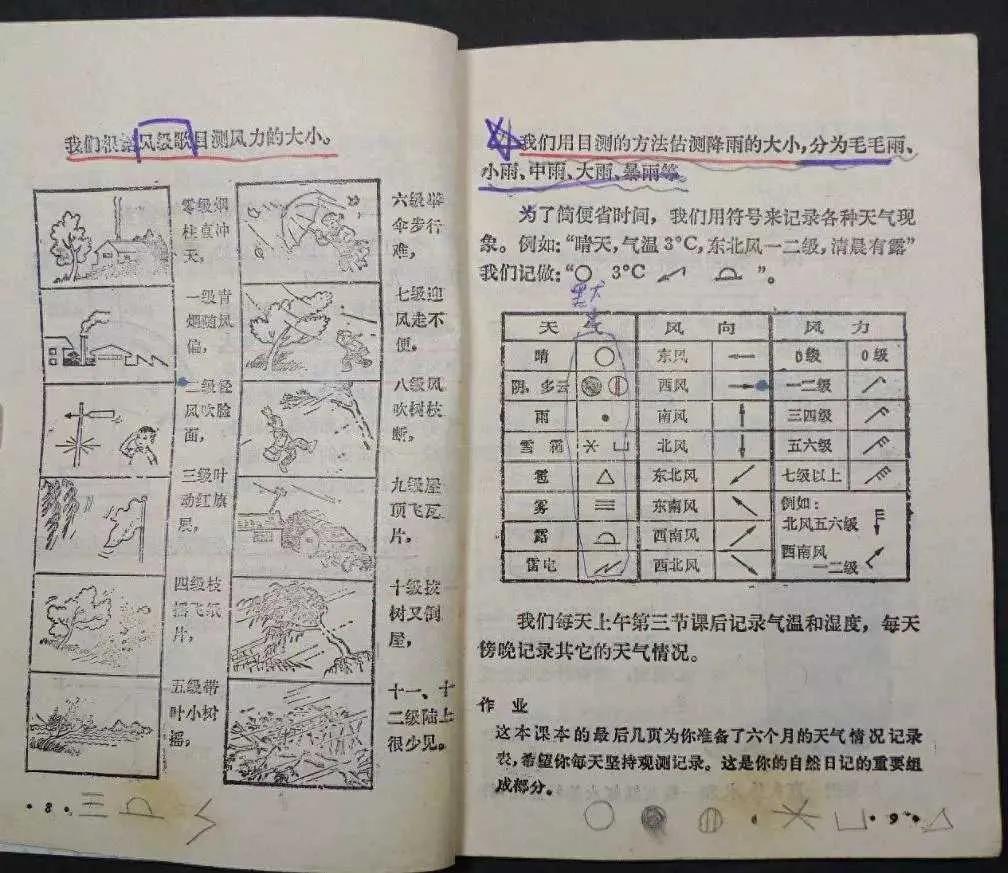 我们根据风级歌目测风力的大小。
零级烟
柱直冲
天，
一级青
烟随风
偏，
二级轻
风吹脸
面，
三级叶
动红旗
展，
四级枝
摇飞纸
片，
五级带
叶小树
摇，
六级举
伞步行
难，
七级迎
风走不
便，
八级风
吹树枝
断，
九级屋
顶飞瓦
片。
十级拔
树又倒
屋，
十一、十
二级陆上
很少见。
·8·
我们用目测的方法估测降雨的大小，分为毛毛雨、
小雨、中雨、大雨、暴雨等。
为了简便省时间，我们用符号来记录各种天气现
象。例如：“晴天，气温3°C，东北风一二级，清晨有露”
我们记做：“○ 3°C ”。
天 风向 风力
晴 东风 0级 0级
阴，多云 西风 一二级
雨 南风 三四级
雪 霜 北风 五六级
雹 东北风 七级以上
雾 东南风 例如：
北风五六级
露 西南风 西南风
一二级
雷电 西北风
我们每天上午第三节课后记录气温和湿度，每天
傍晚记录其它的天气情况。
作业
这本课本的最后几页为你准备了六个月的天气情况记录
表，希望你每天坚持观测记录。这是你的自然日记的重要组
成部分。
·9·